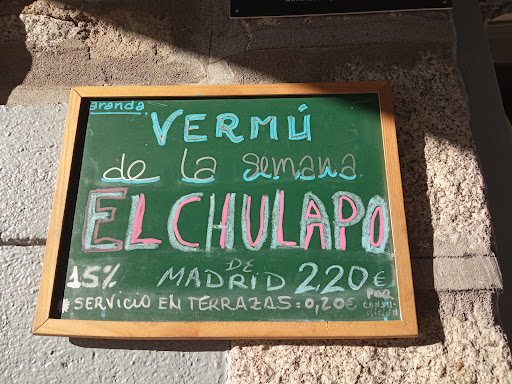 aranda
VERMÚ
de la semana
EL CHULAPO
15% DE MADRID 220€
*SERVICIO EN TERRAZAS=0,20€ POR CONSUMICIÓN